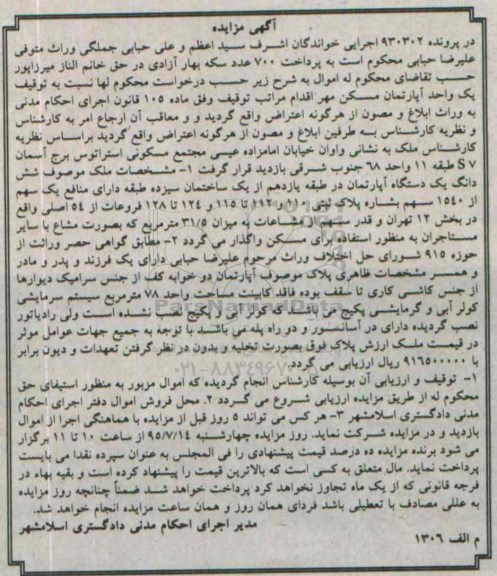 آگهی مزایده
در پرونده ۹۳۰۳۰۲ اجرایی خواندگان اشرف سید اعظم و علی حبابی جملگی وراث متوفی
علیرضا حبابی محکوم است به پرداخت ۷۰۰ عدد سکه بهار آزادی در حق خانم الناز میرزاپور
حسب تقاضای محکوم له اموال به شرح زیر حسب درخواست محکوم لها نسبت به توقیف
یک واحد آپارتمان مسکن مهر اقدام مراتب توقیف وفق ماده ۱۰۵ قانون اجرای احکام مدنی
به وراث ابلاغ و مصون از هرگونه اعتراض واقع گردید و و معاقب آن ارجاع امر به کارشناس
و نظریه کارشناس به طرفین ابلاغ و مصون از هرگونه اعتراض واقع گردید براساس نظریه
کارشناس ملک به نشانی واوان خیابان امامزاده عیسی مجتمع مسکونی استراتوس برج آسمان
S۷ طبقه ۱۱ واحد ۶۸ جنوب شرقی بازدید قرار گرفت ۱- مشخصات ملک موصوف شش
دانگ یک دستگاه آپارتمان در طبقه یازدهم از یک ساختمان سیزده طبقه دارای منافع یک سهم
از ۱۵۴۰ سهم بشماره پلاک ثبتی ۱۱۰ و ۱۱۲ تا ۱۱۵ و ۱۲۴ تا ۱۲۸ فروعات از ۵۴ اصلی واقع
در بخش ۱۲ تهران و قدر سهم از مشاعات به میزان ۳۱/۵ مترمربع که بصورت مشاع با سایر
مستاجران به منظور استفاده برای مسکن واگذار می گردد ۲- مطابق گواهی حصر وراثت از
حوزه ۹۱۵ شورای حل اختلاف وراث مرحوم علیرضا حبابی دارای یک فرزند و پدر و مادر
و همسر مشخصات ظاهری پلاک موصوف آپارتمان دو خوابه کف از جنس سرامیک دیوارها
از جنس کاشی کاری تا سقف بوده فاقد کابینت مساحت واحد ۷۸ مترمربع سیستم سرمایشی
کولر آبی و گرمایشی پکیج می باشد که کولر آبی و پکیج نصب نشده است ولی رادیاتور
نصب گردیده دارای در آسانسور و دو راه پله می باشد با توجه به جمیع جهات عوامل موثر
در قیمت ملک ارزش پلاک فوق بصورت تخلیه و بدون در نظر گرفتن تعهدات و دیون برابر
با ۹۱۶۵۰۰۰۰۰ ریال ارزیابی می گردد
۱- توقیف و ارزیابی آن بوسیله کارشناس انجام گردیده که اموال مزبور به منظور استیفای حق
محکوم له از طریق مزایده ارزیابی شروع می گردد ۲. محل فروش اموال دفتر اجرای احکام
مدنی دادگستری اسلامشهر ۳- هر کس می تواند ۵ روز قبل از مزایده با هماهنگی اجرا از اموال
بازدید و در مزایده شرکت نماید. روز مزایده چهارشنبه ۹۵/۷/۱۴ از ساعت ۱۰ تا ۱۱ برگزار
می شود برنده مزایده ده درصد قیمت پیشنهادی را فی المجلس به عنوان سپرده نقدا می بایست
پرداخت نماید. مال متعلق به کسی است که بالاترین قیمت را پیشنهاد کرده است و بقیه بهاء در
فرجه قانونی که از یک ماه تجاوز نخواهد کرد پرداخت خواهد شد ضمناً چنانچه روز مزایده
به عللی مصادف با تعطیلی باشد فردای همان روز و همان ساعت مزایده انجام خواهد شد.
مدیر اجرای احکام مدنی دادگستری اسلامشهر
م الف ۱۳۰۶
ParsNamadData
۰۲۱-۸۸۳۴۹۶۷۰-۵